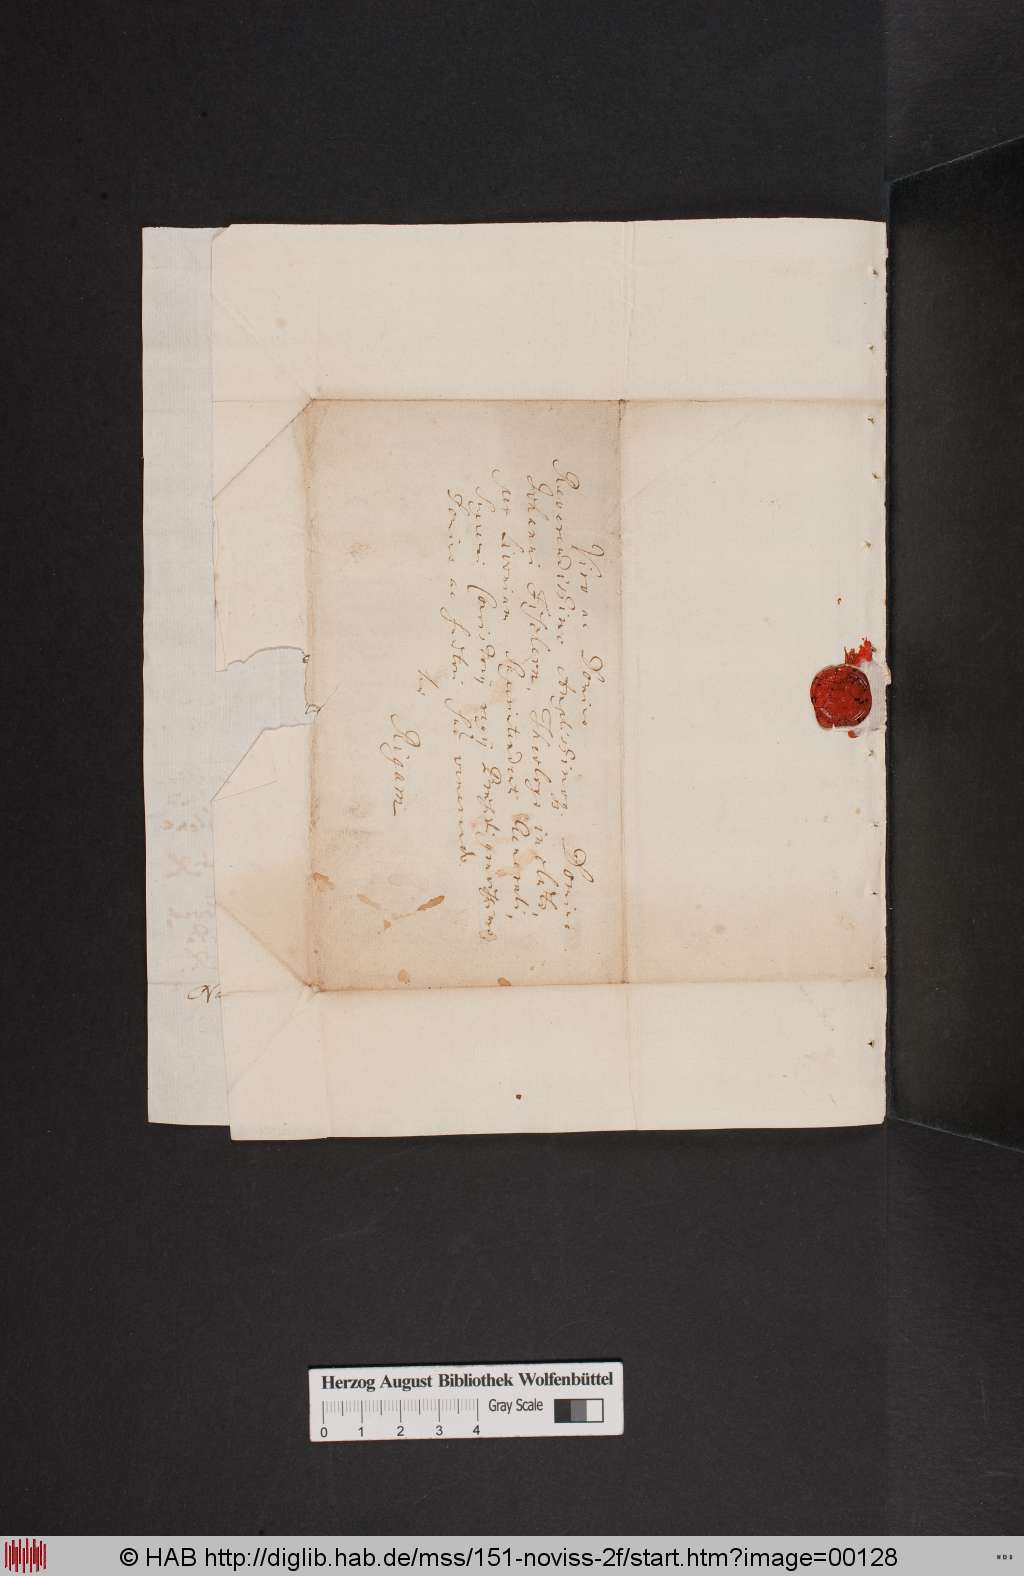 Viro ac Domino
Reverendissimo Amplissimoq. Domino
Johanni Fischern, Theologo inclyto,
per Livoniam Superintendenti Generali,
Supremi Consistorij
Domino ac Fautori venerando
Rigam
Herzog August Bibliothek Wolfenbüttel
Gray Scale
0 1 2 3 4
© HAB http://diglib.hab.de/mss/151-noviss-2f/start.htm?image=00128